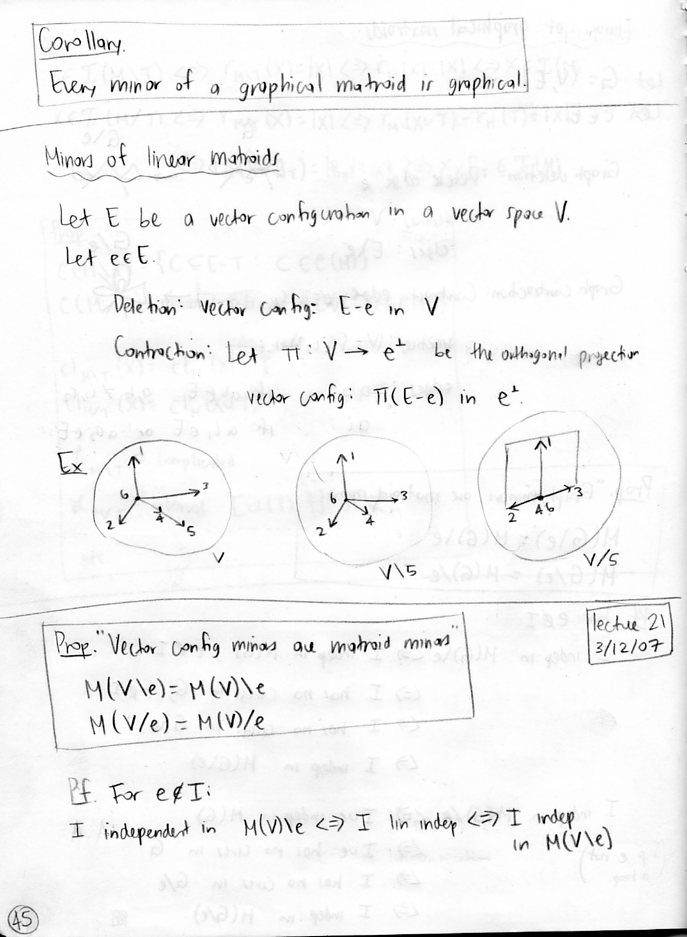 Corollary.
Every minor of a graphical matroid is graphical.
Minors of linear matroids
Let E be a vector configuration in a vector space V.
Let e∈E.
Deletion: Vector config: E-e in V
Contraction: Let π: V → e⊥ be the orthogonal projection
vector config: π(E-e) in e⊥.
Ex
1
6
3
2
4
5
V
1
6
3
2
4
V\5
1
3
2
4 6
V/5
lecture 21
3/12/07
Prop. "Vector config minors are matroid minors"
M(V\e) = M(V)\e
M(V/e) = M(V)/e
Pf. For e∉I:
I independent in M(V)\e <=> I lin indep. <=> I indep
in M(V\e)
45